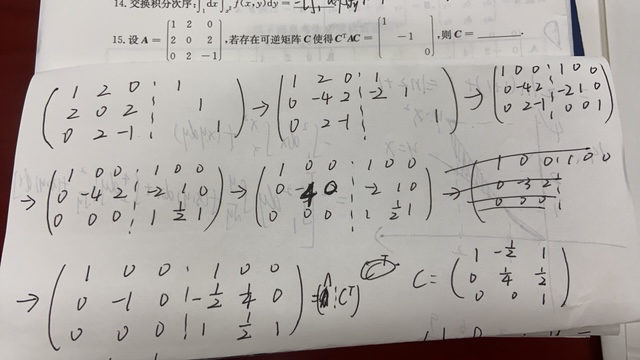 14. 交换积分次序: ∫₁dx∫ₓ² f(x,y)dy=
15. 设 A = (1 2 0; 2 0 2; 0 2 -1), 若存在可逆矩阵 C 使得 CᵀAC = (1; -1; 0), 则 C = ____.
(1 2 0 ⋮ 1; 2 0 2 ⋮ 1; 0 2 -1 ⋮ 1) → (1 2 0 ⋮ 1; 0 -4 2 ⋮ -2 1; 0 2 -1 ⋮ 1) → (1 0 0 ⋮ 1 0 0; 0 -4 2 ⋮ -2 1 0; 0 2 -1 ⋮ 0 0 1)
→ (1 0 0 ⋮ 1 0 0; 0 -4 2 ⋮ -2 1 0; 0 0 0 ⋮ 1 ½ 1) → (1 0 0 ⋮ 1 0 0; 0 -4 0 ⋮ -2 1 0; 0 0 0 ⋮ 1 ½ 1) → (1 0 0 ⋮ 1 0 0; 0 -3 2 ⋮; 0 0 0 ⋮
→ (1 0 0 ⋮ 1 0 0; 0 -1 0 ⋮ -½ ¼ 0; 0 0 0 ⋮ 1 ½ 1) = (Λ ⋮ Cᵀ) C = (1 -½ 1; 0 ¼ ½; 0 0 1)